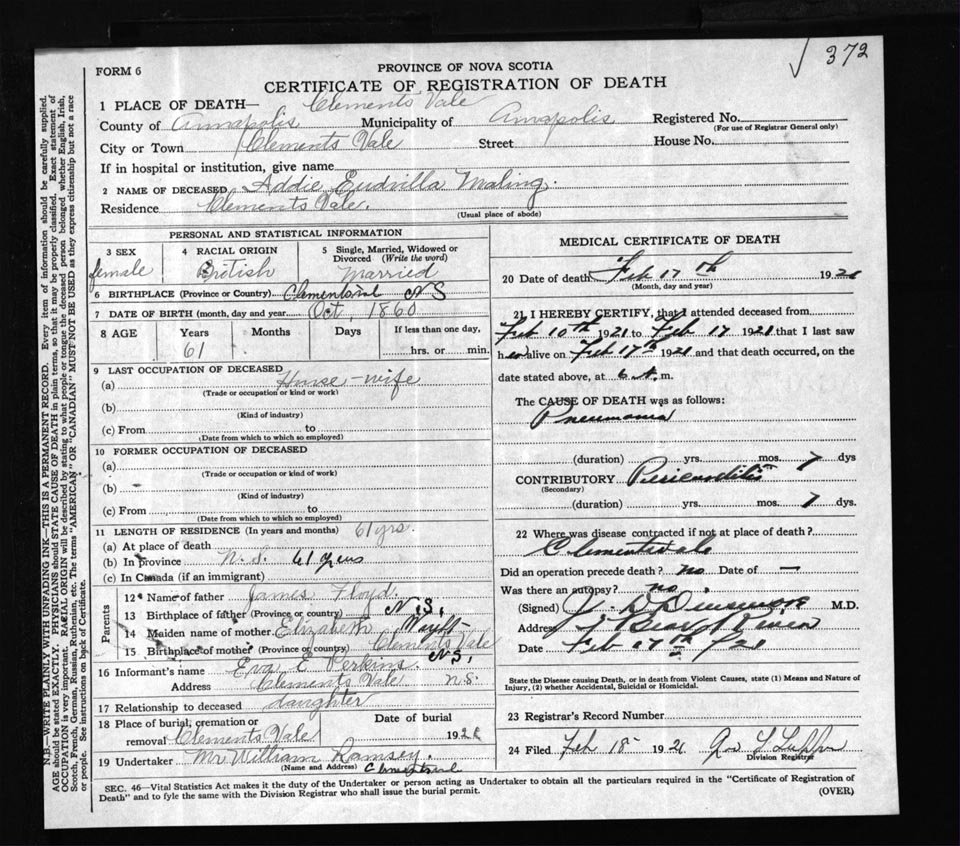 372
FORM 6
PROVINCE OF NOVA SCOTIA
CERTIFICATE OF REGISTRATION OF DEATH
1 PLACE OF DEATH— Clements Vale
County of Annapolis Municipality of Annapolis Registered No.
(For use of Registrar General only)
City or Town Clements Vale Street House No.
If in hospital or institution, give name
2 NAME OF DECEASED Addie Maling.
Residence Clements Vale.
(Usual place of abode)
PERSONAL AND STATISTICAL INFORMATION
3 SEX 4 RACIAL ORIGIN 5 Single, Married, Widowed or Divorced (Write the word)
female British Married
6 BIRTHPLACE (Province or Country) NS
7 DATE OF BIRTH (month, day and year) Oct, 1860
8 AGE Years Months Days If less than one day,
61 hrs. or min.
9 LAST OCCUPATION OF DECEASED
(a) House-wife
(Trade or occupation or kind of work)
(b)
(Kind of industry)
(c) From to
(Date from which to which so employed)
10 FORMER OCCUPATION OF DECEASED
(a)
(Trade or occupation or kind of work)
(b)
(Kind of industry)
(c) From to
(Date from which to which so employed)
11 LENGTH OF RESIDENCE (In years and months) 61 yrs.
(a) At place of death
(b) In province N.S. 61 years
(c) In Canada (if an immigrant)
Parents
12 Name of father James Floyd.
13 Birthplace of father (Province or country) N.S.
14 Maiden name of mother Elizabeth
15 Birthplace of mother (Province or country) Clements Vale N.S.
16 Informant's name Eva E Perkins.
Address Clements Vale N.S.
17 Relationship to deceased daughter
18 Place of burial, cremation or removal Clements Vale Date of burial 192
19 Undertaker Mr William Ramsey.
(Name and Address)
MEDICAL CERTIFICATE OF DEATH
20 Date of death Feb 17th 1921
(Month, day and year)
21 I HEREBY CERTIFY, that I attended deceased from
Feb 10th 1921 to Feb 17 1921 that I last saw
her alive on Feb 17th 1921 and that death occurred, on the
date stated above, at 6 A.m.
The CAUSE OF DEATH was as follows:
Pneumonia
(duration) yrs. mos. 7 dys
CONTRIBUTORY Pericarditis
(Secondary)
(duration) yrs. mos. 7 dys.
22 Where was disease contracted if not at place of death?
Clementsvale
Did an operation precede death? no Date of —
Was there an autopsy? no.
(Signed) M.D.
Address Bear River
Date Feb 17th /21
State the Disease causing Death, or in death from Violent Causes, state (1) Means and Nature of
Injury, (2) whether Accidental, Suicidal or Homicidal.
23 Registrar's Record Number
24 Filed Feb 18 1921
Division Registrar
SEC. 46—Vital Statistics Act makes it the duty of the Undertaker or person acting as Undertaker to obtain all the particulars required in the "Certificate of Registration of
Death" and to fyle the same with the Division Registrar who shall issue the burial permit.
(OVER)
N.B.—WRITE PLAINLY WITH UNFADING INK—THIS IS A PERMANENT RECORD. Every item of information should be carefully supplied.
AGE should be stated EXACTLY. PHYSICIANS should STATE CAUSE OF DEATH in plain terms, so that it may be properly classified. Exact statement of
OCCUPATION is very important. RACIAL ORIGIN will be described by stating to what people or tongue the deceased person belonged, whether English, Irish,
Scotch, French, German, Russian, Ruthenian, etc. The terms "AMERICAN" OR "CANADIAN" MUST NOT BE USED as they express citizenship but not a race
or people. See instructions on back of Certificate.